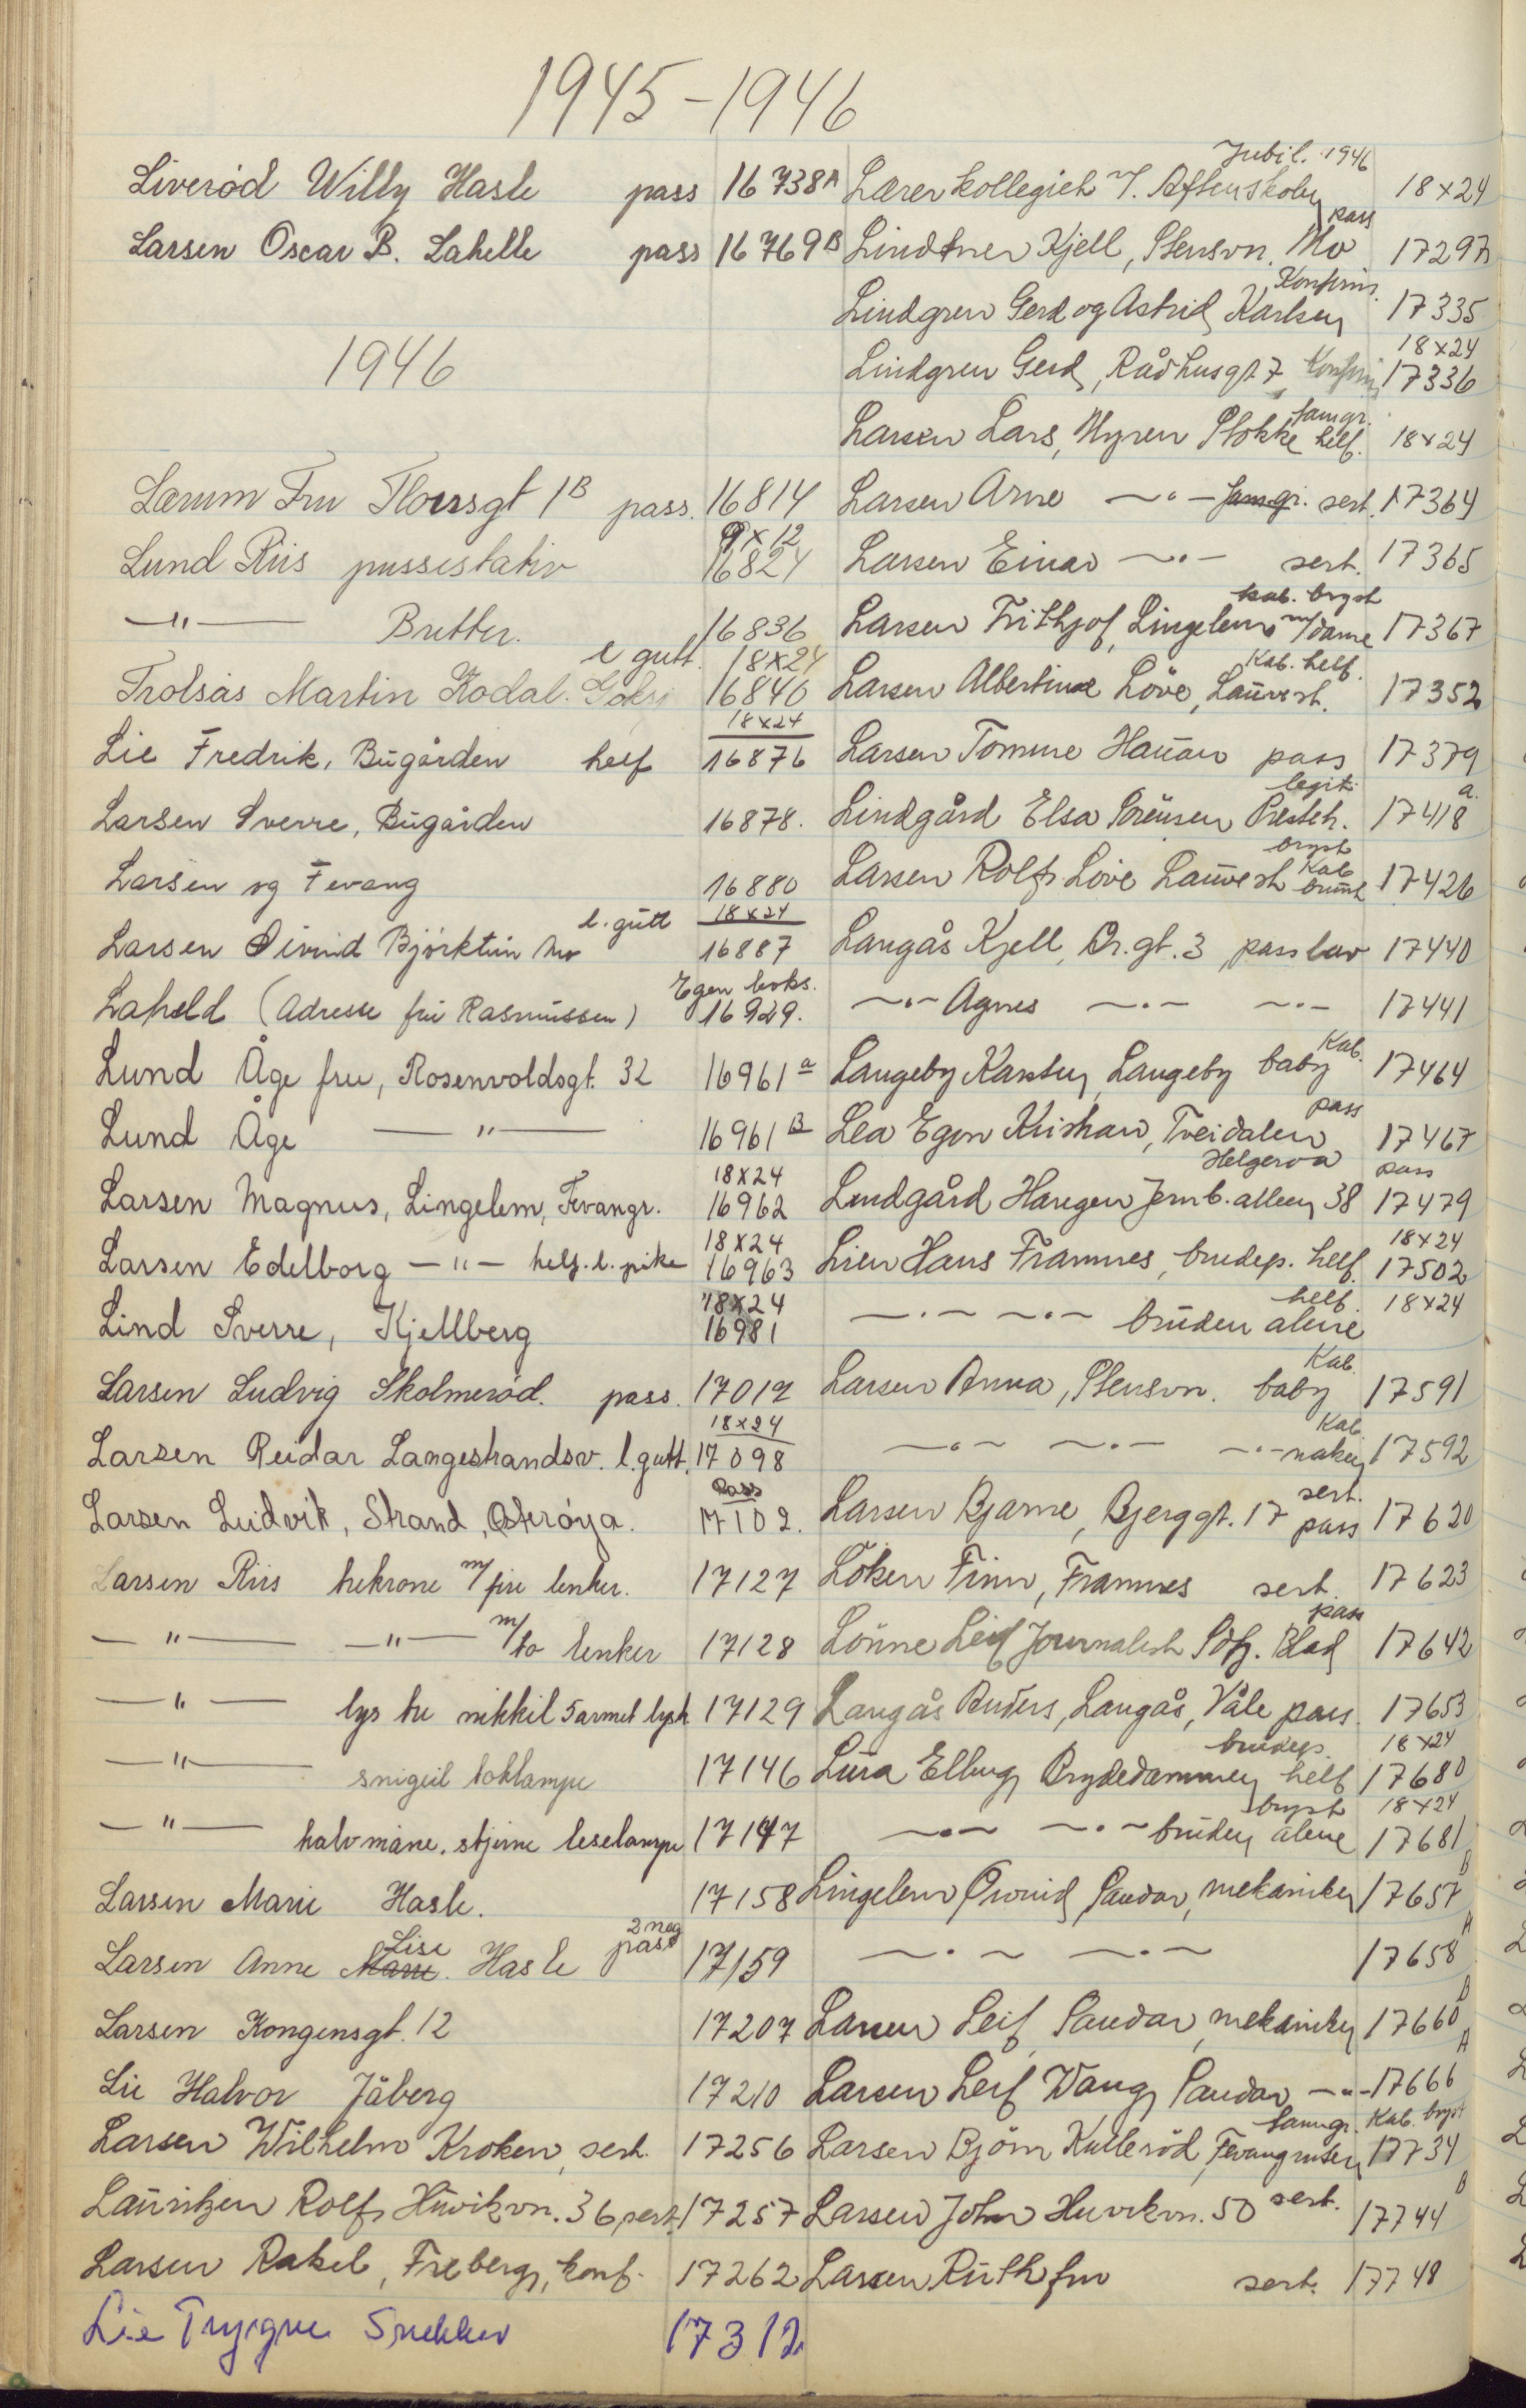 1945-1946
Liverød Willy Hasle pass 16738A
Larsen Oscar B. Lahelle pass 16769B
1946
Lærum Fru Thorsgt 1B pass. 16814
9x12
Lund Riis pussestativ 16824
—"— Bretter. 16836
l gutt. 18x24
Trolsås Martin Kodal. 16840
18x24
Lie Fredrik, Bugården helf 16876
Larsen Sverre, Bugården 16878.
Larsen og Fevang 16880
l. gutt 18x24
Larsen Øivind Bjørktun Mo 16887
Egen boks.
Laheld (Adresse fru Rasmussen) 16929.
Lund Åge fru, Rosenvoldsgt. 32 16961a
Lund Åge —"— 16961B
18x24
Larsen Magnus, Lingelem, Fevangr. 16962
18x24
Larsen Edelborg —"— helf. l. pike 16963
18x24
Lind Sverre, Kjellberg 16981
Larsen Ludvig Skolmerød. pass. 17017
18x24
Larsen Reidar Langestrandsv. l. gutt. 17098
Pass
Larsen Ludvik, Strand, Østerøya. 17102.
Larsen Riis hekrone m/ fire lenker. 17127
—"— —"— m/ to lenker 17128
—"— lys tre nikkil 5 armet lysk 17129
—"— snigeil boklampe 17146
—"— halvmåne, stjerne leselampe 17147
Larsen Marie Hasle. 17158
Lise 2 neg
Larsen Anne Marie. Hasle pass 17159
Larsen Kongensgt. 12 17207
Lie Halvor Jåberg 17210
Larsen Wilhelm Kroken, sert. 17256
Lauritzen Rolf, Huvikvn. 36, sert. 17257
Larsen Rakel, Freberg, konf. 17262
Lie Trygve Snekker 17312
Jubil. 1946
Lærerkollegiet v. Aftenskolen 18x24
pass
Lindtner Kjell, Stensvn. Mo 17297
Konfirm.
Lindgren Gerd og Astrid Karlsen 17335
18x24
Lindgren Gerd, Rådhusgt. 7 Konfirm. 17336
famgr.
Larsen Lars, Myren Stokke helf. 18x24
Larsen Arne —"— famgr. sert. 17364
Larsen Einar —"— sert. 17365
kab. bryst
Larsen Frithjof, Lingelem m/dame 17367
Kab. helf.
Larsen Albertine Löve, Lauvest. 17352
Larsen Tomine Hauan pass 17379
legit. a.
Lindgård Elsa Sørensen Presteh. 17418
bryst
Larsen Rolf Löve Lauvest Kab 17426
Langås Kjell, Dr. gt. 3, pass lav 17440
—"— Agnes —"— —"— 17441
Kab.
Langeby Karsten, Langeby baby 17464
pass
Lea Egon Kristian, Tveidalen 17467
Helgeroa pass
Lindgård Haregen Jernb. alleen 38 17479
18x24
Lien Hans Framnes, brudep. helf. 17502
helf. 18x24
—"— —"— bruden alene
Kab.
Larsen Anna, Stensvn. baby 17591
Kab.
—"— —"— —"— naken 17592
sert.
Larsen Bjarne, Bjerggt. 17 pass 17620
Løken Finn, Framnes sert. 17623
pass
Lönne Leif Journalist Sdfj. Blad 17642
Langås Anders, Langås, Våle pass. 17653
brudep. 18x24
Lura Elling Brydedammen helf 17680
bryst 18x24
—"— —"— bruden alene 17681
B
Lingelem Øivind Sandar, mekaniker 17657
A
—"— —"— 17658
B
Larsen Leif Sandar, mekaniker 17660
A
Larsen Leif Wang Sandar —"— 17666
famgr. Kab. bryst
Larsen Bjørn Kullerød, Fevangruten 17734
B
Larsen John Huvikvn. 50 sert. 17744
Larsen Ruth fru sert. 17748